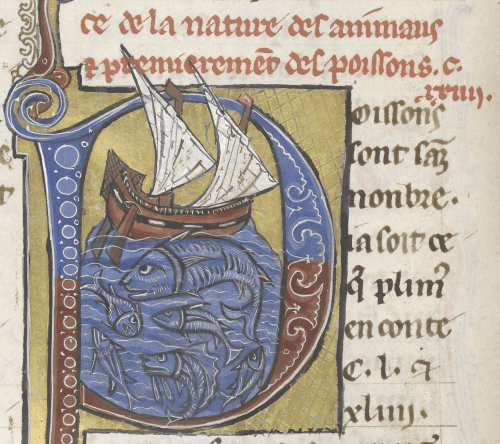 ce de la nature des animaus
⁊ premieremēt des poissons. c.
xxiiii.
Poissons
sont sāz
nonbre.
ia soit ce
q̄ plinꝰ
en conte
C. l. ⁊
xliiii.